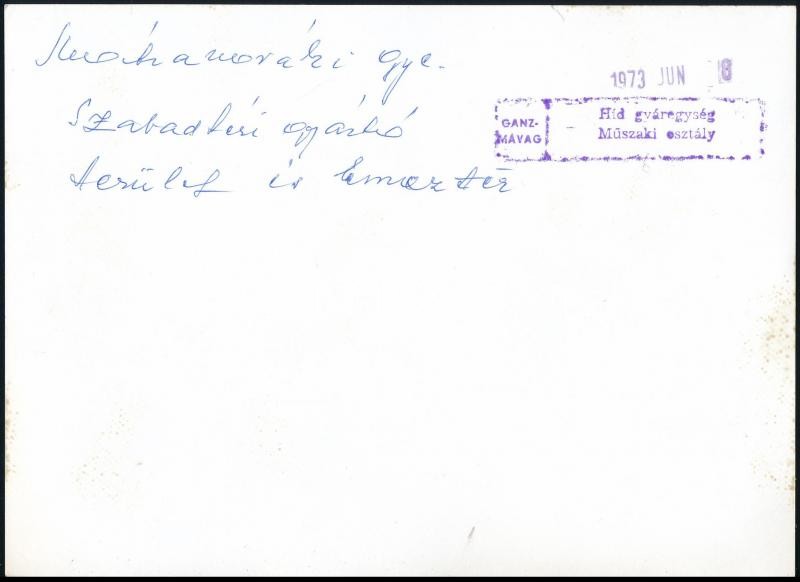 Mátranováki gye.
1973 JUN 18
GANZ-
MÁVAG
Híd gyáregység
Műszaki osztály
Szabadtéri gyártó
terület és